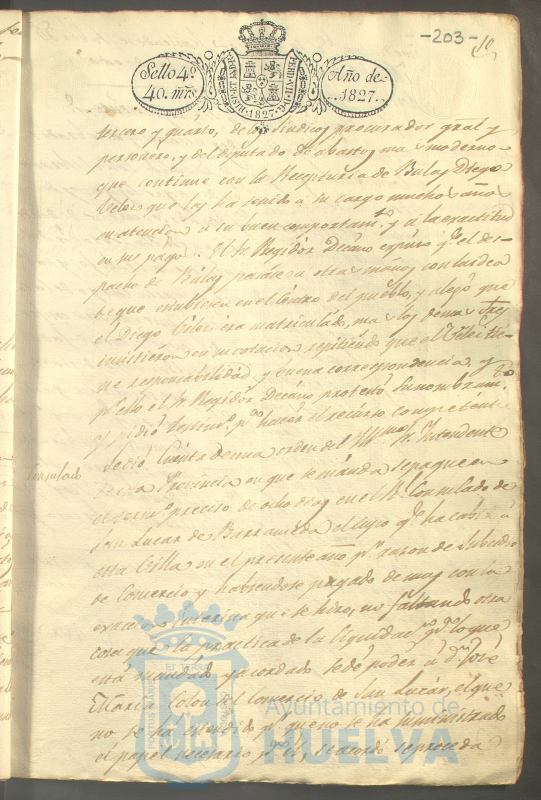 -203- 10
Sello 4º
40. mrs
HISP. ET IND. R. FERD. VII. D. G. 1827
Año de
1827.
tercero y quarto, de los Sindicos procurador gral y
personero, y del diputado de abastos mas moderno
que continue con la Receptoria de Bulas Diego
Velez que las ha tenido a su cargo muchos años
en atencion a su buen comportamto y a la exactitud
en sus pagos. El Sr Regidor Decano expuso qe el des-
pacho de Bulas pasase a otras manos con la idea
de que estubiese en el Centro del pueblo, y alegó que
el Diego Velez era matriculado, mas los demas Sres
insistieron en su votacion repitiendo que el Velez tie-
ne responsabilidad y buena correspondencia, y
pr ello el Sr Regidor Decano protestó su nombramto
y pidió testimo pa hacer el recurso competente
Consulado
Se dió Cuenta de una orden del Sr Intendente
de esta Provincia en que se manda se pague en
el termo preciso de ocho dias en el Rl Consulado de
San Lucar de Barrameda el cupo qe ha cabido a
esta Villa en el presente año pr razon de Subsidio
de Comercio y habiendose pagado de mas con la
exaccion interina que se hizo, no faltando otra
cosa que la practica de la liquidacn pa lo que
está mandado y acordado se dé poder a Dn José
Maria Colon del Comercio de San Lucar, el que
no se ha estendido pr que no se ha suministrado
el papel necesario pa el, se acordó se proceda
Ayuntamiento de
HUELVA